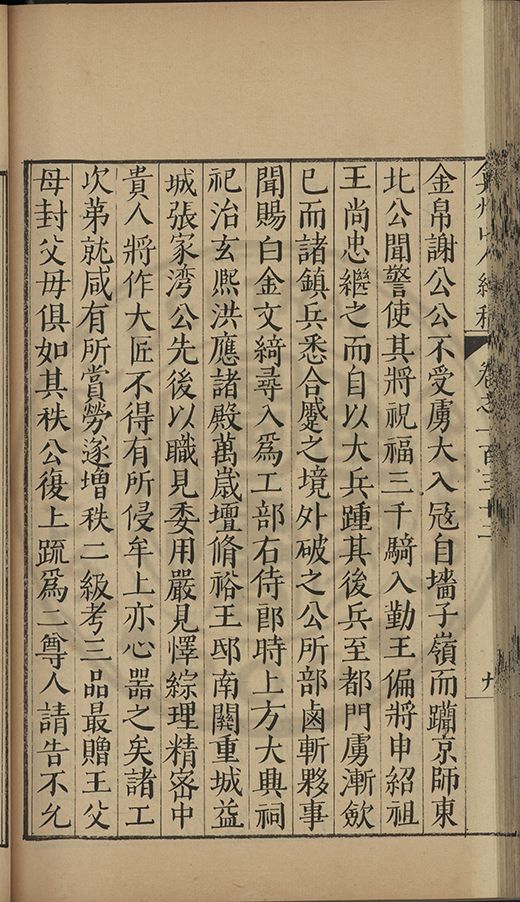 弇州山人續稿 卷之一百三十二 九
金帛謝公公不受虜大入冦自墻子嶺而躪京師東
北公聞警使其將祝福三千騎入勤王偏將申紹祖
王尚忠繼之而自以大兵踵其後兵至都門虜漸歛
已而諸鎮兵悉合蹙之境外破之公所部鹵斬夥事
聞賜白金文綺尋入爲工部右侍郎時上方大興祠
祀治玄熈洪應諸殿萬歳壇脩裕王邸南闕重城益
城張家湾公先後以職見委用嚴見懌綜理精宻中
貴人將作大匠不得有所侵牟上亦心噐之矣諸工
次苐就咸有所賞勞遂增秩二級考三品最贈王父
母封父母俱如其秩公復上䟽爲二尊人請告不允